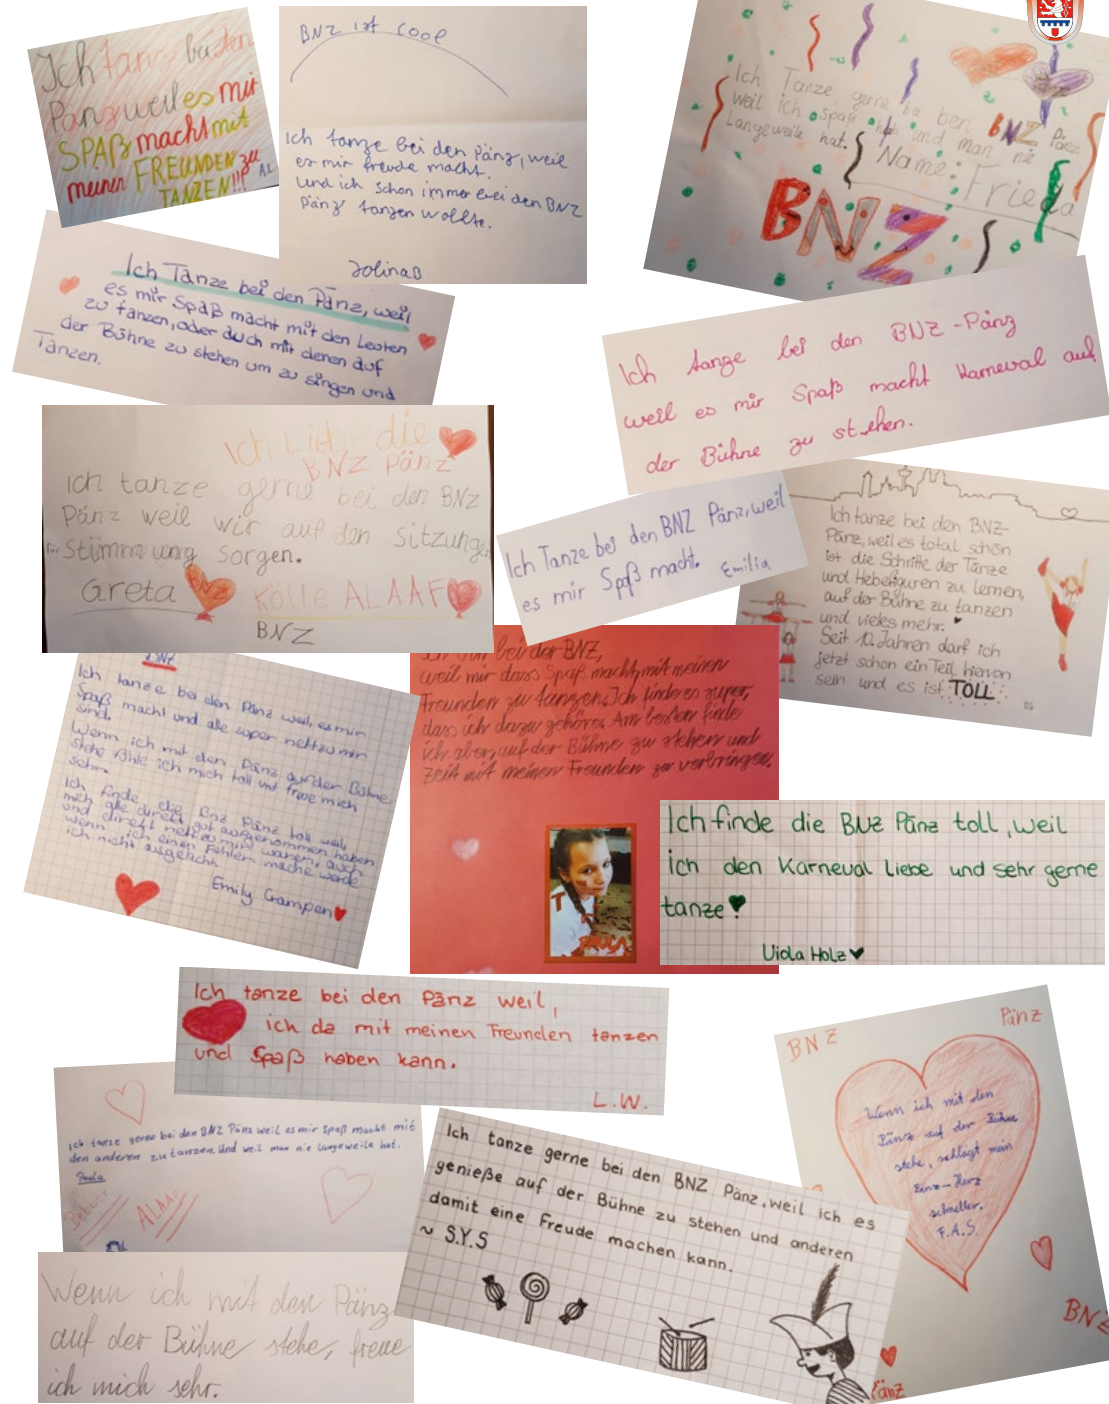 Ich tanz bei den
Pänz weil es mir
SPAß macht mit
meinen FREUNDEN zu
TANZEN!!! AL
BNZ ist cool
Ich tanze bei den Pänz, weil
es mir freude macht.
Und ich schon immer bei den BNZ
Pänz tanzen wollte.
JolinaB
Ich Tanze gerne bei ben BNZ Pänz
weil ich spaß hab und man nie
Langeweile hat.
Name: Frieda
BNZ
Ich Tanze bei den Pänz, weil
es mir Spaß macht mit den Leuten
zu tanzen, oder duch mit denen auf
der Bühne zu stehen um zu singen und
Tanzen.
Ich tanze bei den BNZ-Pänz
weil es mir Spaß macht Karneval auf
der Bühne zu stehen.
Ich Lieb die
BNZ Pänz
Ich tanze gerne bei den BNZ
Pänz weil wir auf den sitzungen
für Stimmung sorgen.
Greta BNZ Kölle ALAAF
BNZ
Ich Tanze bei den BNZ Pänz, weil
es mir Spaß macht. Emilia
Ich tanze bei den BNZ-
Pänz, weil es total schön
ist die Schritte der Tänze
und Hebefiguren zu lernen,
auf der Bühne zu tanzen
und vieles mehr.
Seit 10 Jahren darf ich
jetzt schon ein Teil hiervon
sein und es ist TOLL
BNZ
Ich tanze bei den Pänz weil, es mir
Spaß macht und alle super nett zu mir
sind.
Wenn ich mit den Pänz auf der Bühne
stehe fühle ich mich toll und freue mich
sehr.
Ich finde die Bnz Pänz toll weil,
mich alle direkt gut aufgenommen haben
und direkt nett zu mir waren, auch
wenn ich einen Fehler mache werde
ich nicht ausgelacht.
Emily Campen
Ich bin bei der BNZ,
weil mir dass Spaß macht, mit meinen
Freunden zu tanzen. Ich finde es super,
dass ich dazu gehöre. Am besten finde
ich aber, auf der Bühne zu stehen und
Zeit mit meinen Freunden zu verbringen.
PAULA
Ich finde die BNZ Pänz toll, weil
ich den Karneval liebe und sehr gerne
tanze!
Viola Holz
Ich tanze bei den Pänz weil,
ich da mit meinen Freunden tanzen
und Spaß haben kann.
L.W.
Ich tanze gerne bei den BNZ Pänz weil es mir Spaß macht mit
den anderen zu tanzen. Und weil man nie langeweile hat.
Paula
ALAAF
Ich tanze gerne bei den BNZ Pänz, weil ich es
genieße auf der Bühne zu stehen und anderen
damit eine Freude machen kann.
~ S.Y.S
BNZ Pänz
Wenn ich mit den
Pänz auf der Bühne
stehe, schlägt mein
Pänz-Herz
schneller.
F.A.S.
BNZ
Pänz
Wenn ich mit den Pänz
auf der Bühne stehe, freue
ich mich sehr.